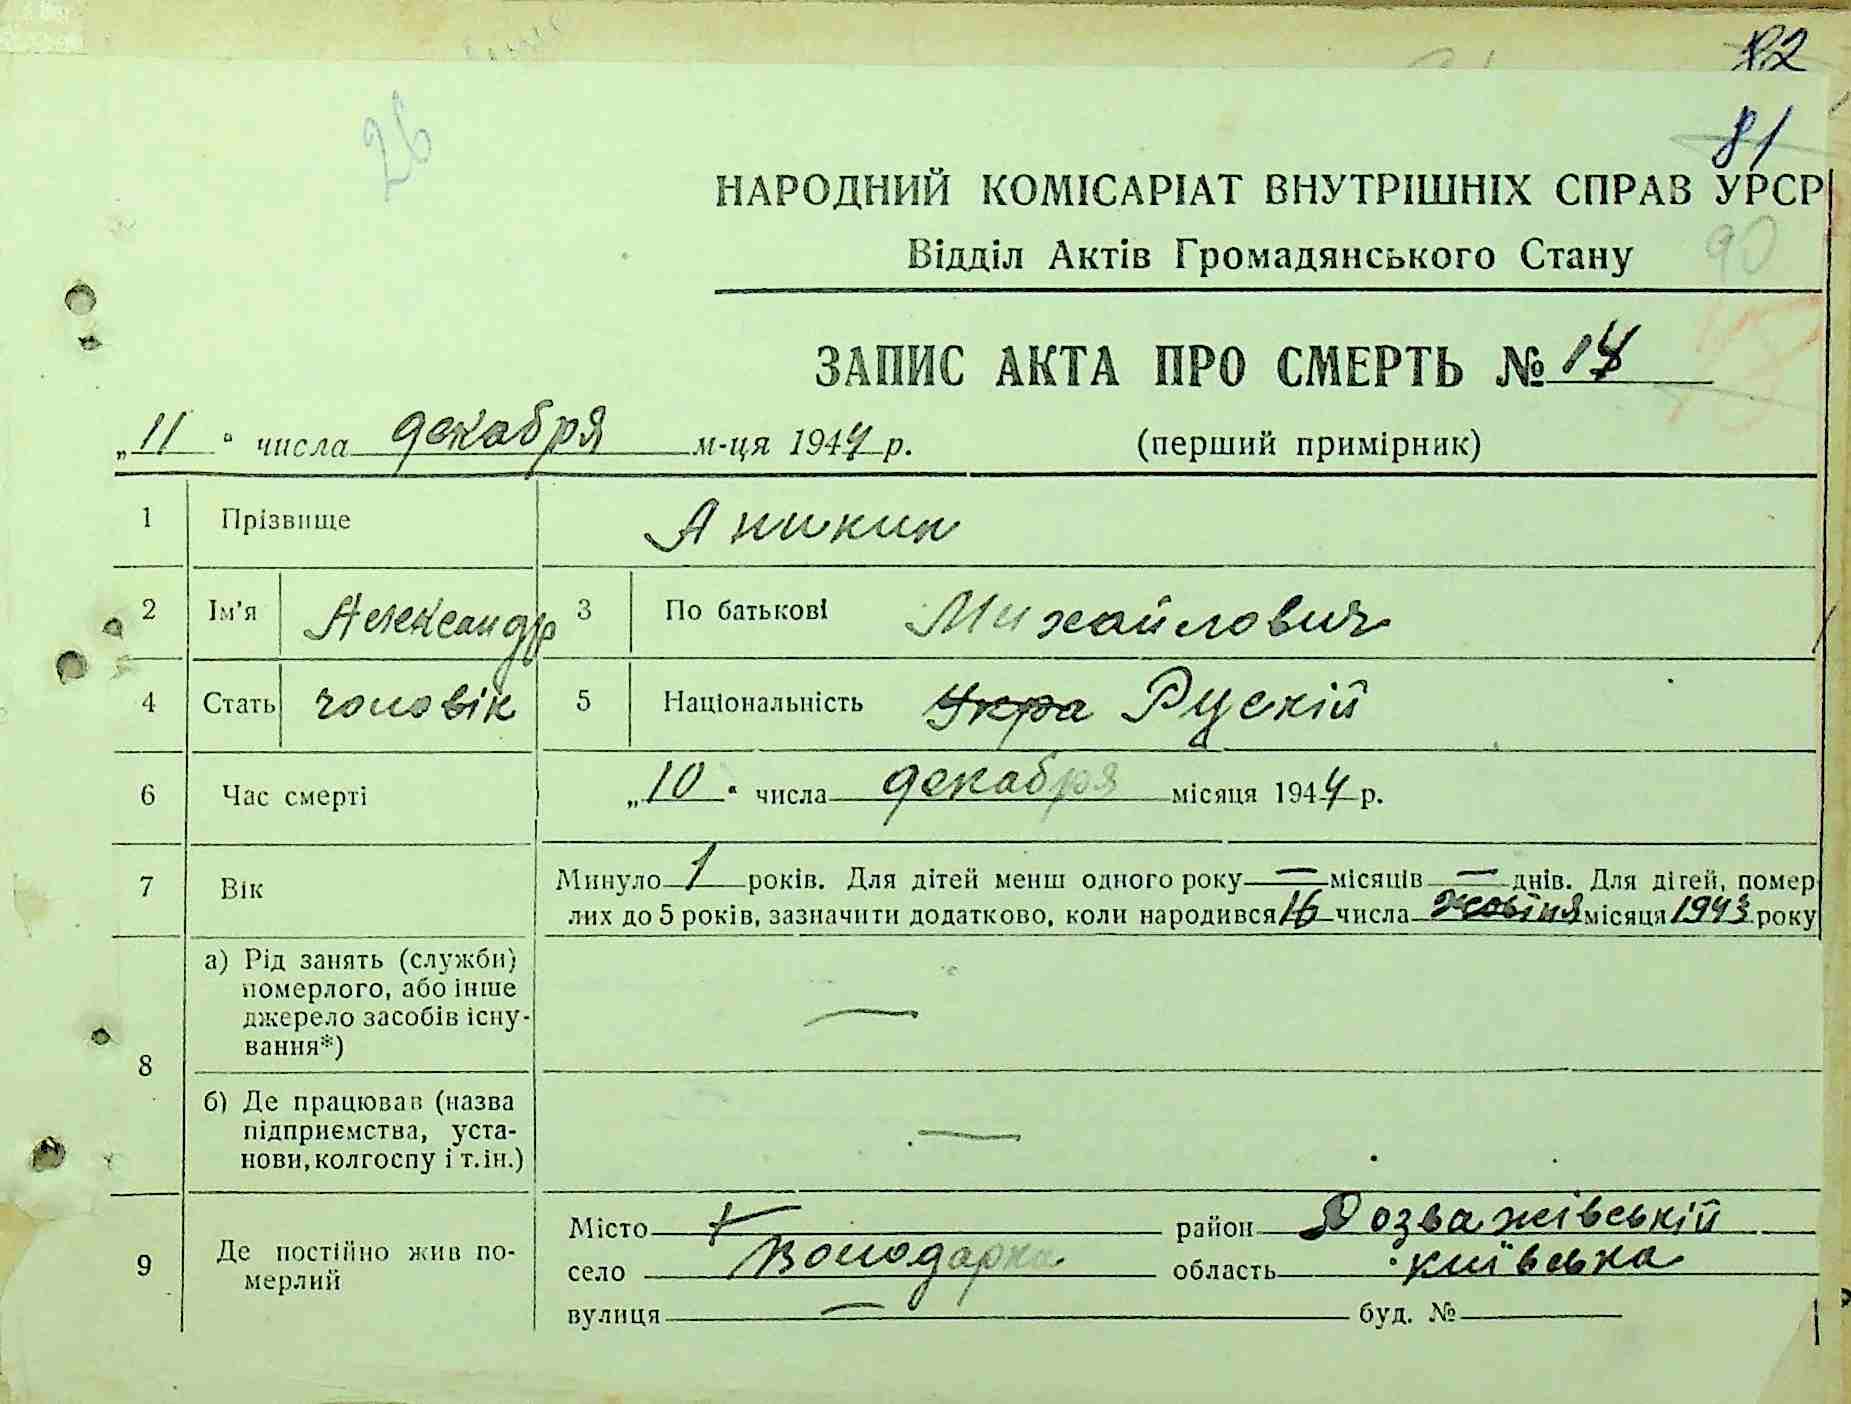 82
26
81
НАРОДНИЙ КОМІСАРІАТ ВНУТРІШНІХ СПРАВ УРСР
Відділ Актів Громадянського Стану
90
ЗАПИС АКТА ПРО СМЕРТЬ №
„11“ числа декабря м-ця 1944 р. (перший примірник)
1 Прізвище Аникин
2 Ім'я Александр 3 По батькові Михайлович
4 Стать чоловік 5 Національність Укра Руский
6 Час смерті „10“ числа декабря місяця 1944 р.
7 Вік Минуло 1 років. Для дітей менш одного року — місяців — днів. Для дітей, помер-
лих до 5 років, зазначити додатково, коли народився 16 числа жовтня місяця 1943 року
8 а) Рід занять (служби)
померлого, або інше
джерело засобів існу-
вання*) —
б) Де працював (назва
підприємства, уста-
нови, колгоспу і т. ін.) —
9 Де постійно жив по-
мерлий
Місто район Розважівській
село Володарка область київська
вулиця — буд. №